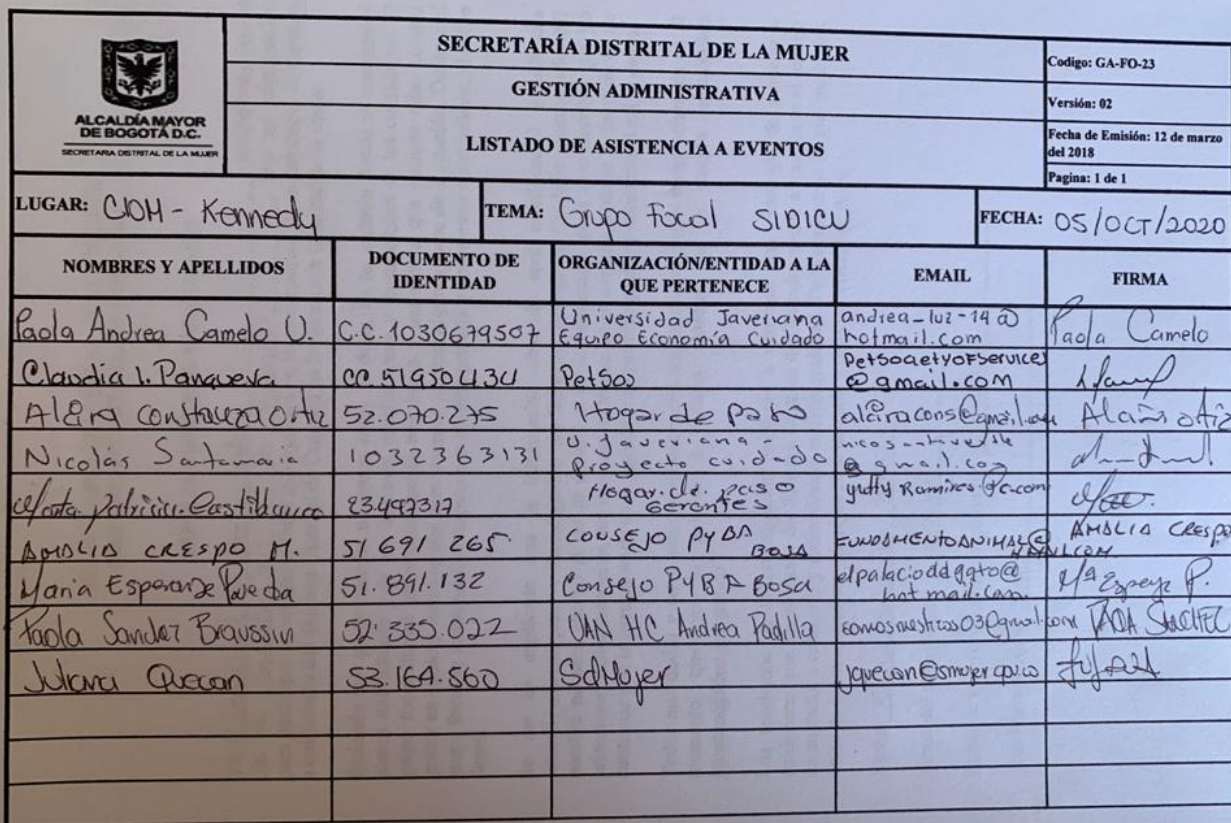 ALCALDÍA MAYOR
DE BOGOTÁ D.C.
SECRETARÍA DISTRITAL DE LA MUJER
SECRETARÍA DISTRITAL DE LA MUJER
GESTIÓN ADMINISTRATIVA
LISTADO DE ASISTENCIA A EVENTOS
Codigo: GA-FO-23
Versión: 02
Fecha de Emisión: 12 de marzo
del 2018
Pagina: 1 de 1
LUGAR: CIOM - Kennedy
TEMA: Grupo Focal SIDICU
FECHA: 05/OCT/2020
NOMBRES Y APELLIDOS
DOCUMENTO DE
IDENTIDAD
ORGANIZACIÓN/ENTIDAD A LA
QUE PERTENECE
EMAIL
FIRMA
Paola Andrea Camelo U. C.C. 1030679507 Universidad Javeriana
Equipo Economía Cuidado
andrea-luz-14@
hotmail.com
Paola Camelo
Claudia I. Panqueva CC 51950434 PetSos
PetSocietyOfServices
@gmail.com
Alcira Constanza Ortiz 52.070.275 Hogar de paso alciracons@gmail.com Alcira Ortiz
Nicolás Santamaría 1032363131 U. Javeriana -
Proyecto cuidado
@gmail.com
Patricia 23.497317 Hogar. de. paso
Gerentes
AMALIA CRESPO M. 51 691 265 CONSEJO PYBA
BOSA
FUNDAMENTOANIMAL@
AMALIA CRESPO
Maria Esperanza Poveda 51.891.132 Consejo PYBA Bosa
elpalaciodelgato@
hotmail.com.
Mª P.
Paola Sanchez Braussin 52'335.022 UAN HC Andrea Padilla somosmestizos03@gmail.com PAOLA SANCHEZ
Juliana Quecan 53.164.560 SdMujer jquecan@sdmujer.gov.co